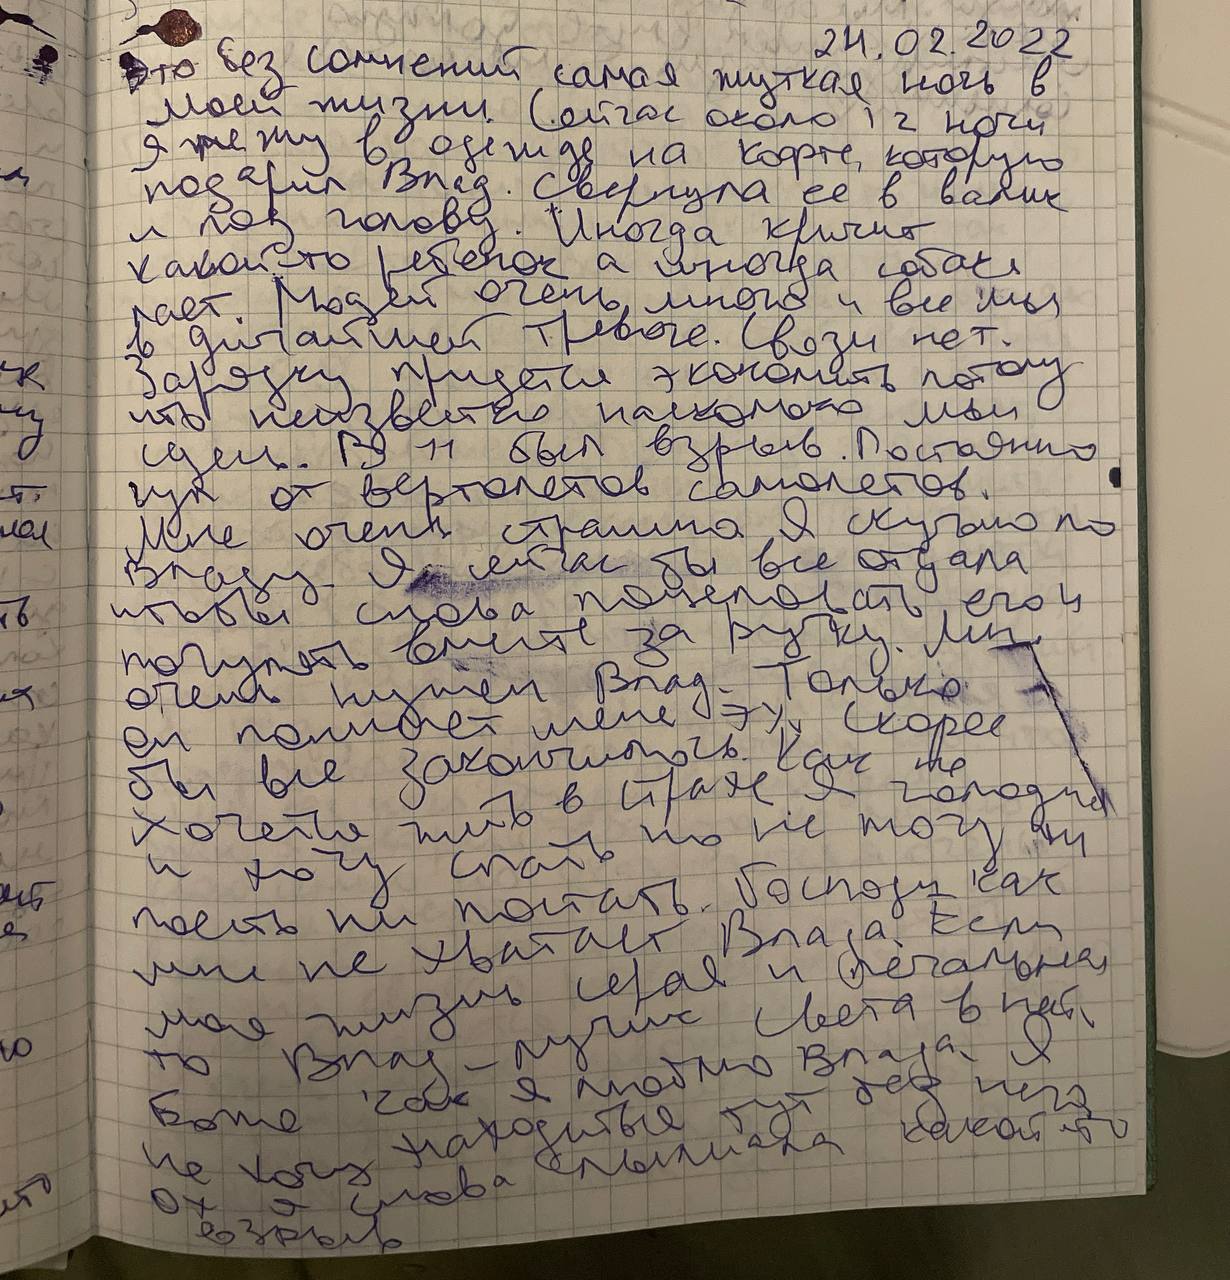 24.02.2022
Это без сомнений самая жуткая ночь в
моей жизни. Сейчас около 12 ночи
Я лежу в одежде на кофте, которую
подарил Влад. Свернула ее в валик
и под голову. Иногда кричит
какой-то ребенок а иногда собака
лает. Людей очень много и все мы
в дичайшей тревоге. Связи нет.
Зарядку придется экономить потому
что неизвестно насколько мы
сдесь. В 11 был взрыв. Постоянно
гул от вертолетов самолетов.
Мне очень страшно Я скучаю по
Владу. Я сейчас бы все отдала
чтобы снова поцеловать его и
погулять вместе за ручку. Мне
очень нужен Влад. Только
он понимает меня эх. Скорее
бы все закончилось. Как не
хочется жить в страхе Я голодна
и хочу спать но не могу ни
поесть ни поспать. Господи как
мне не хватает Влада. Если
моя жизнь серая и печальная,
то Влад - лучик света в ней.
Боже как я люблю Влада. Я
не хочу находиться тут без него
Ох я снова слышала какой-то
взрыв